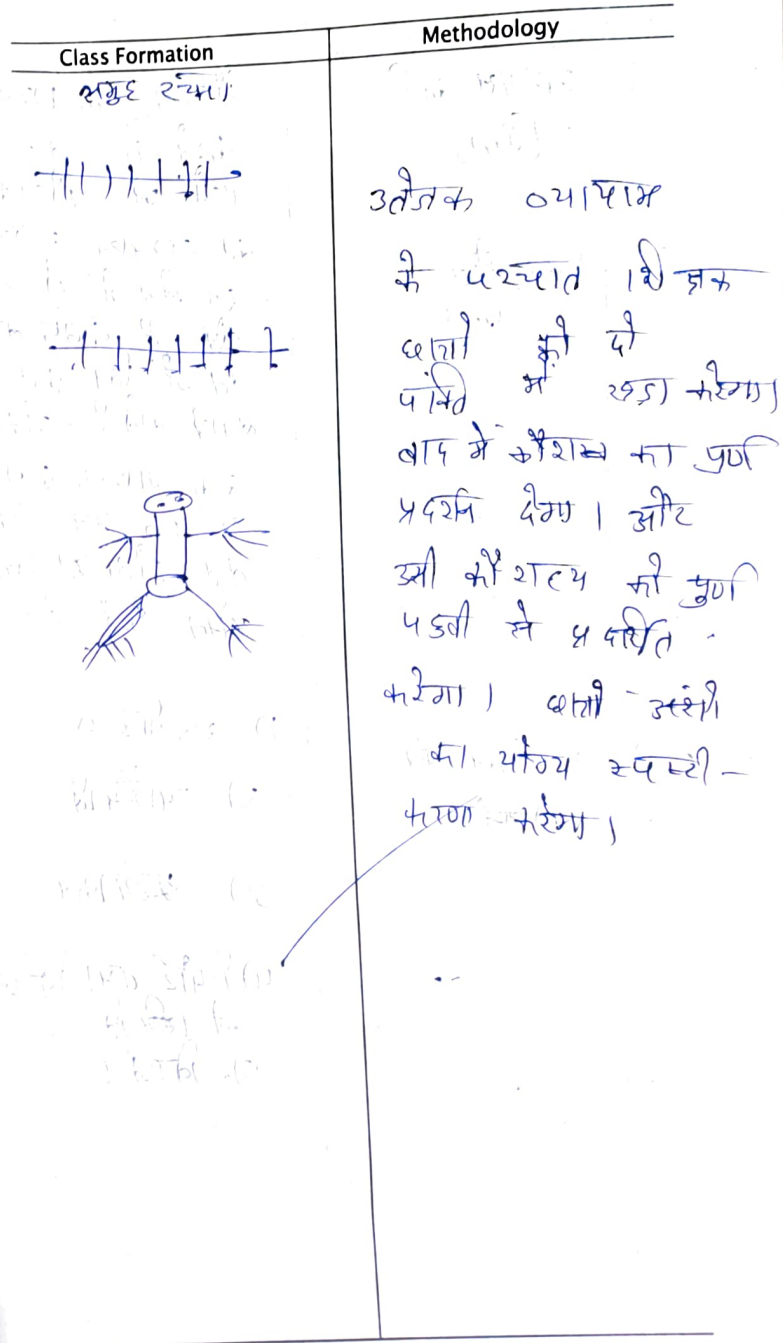 Class Formation
Methodology
समुह रचना
उतेजक व्यायाम
के पश्चात शिक्षक
छात्रो को दो
पंक्ति में खड़ा करेगा।
बाद मे कौशल्य का पुर्ण
प्रदर्शन देगा। और
उसी कौशल्य को पुर्ण
पध्दती से प्रदर्शित
करेगा। छात्रो
का योग्य स्पष्टी-
करण करेगा।